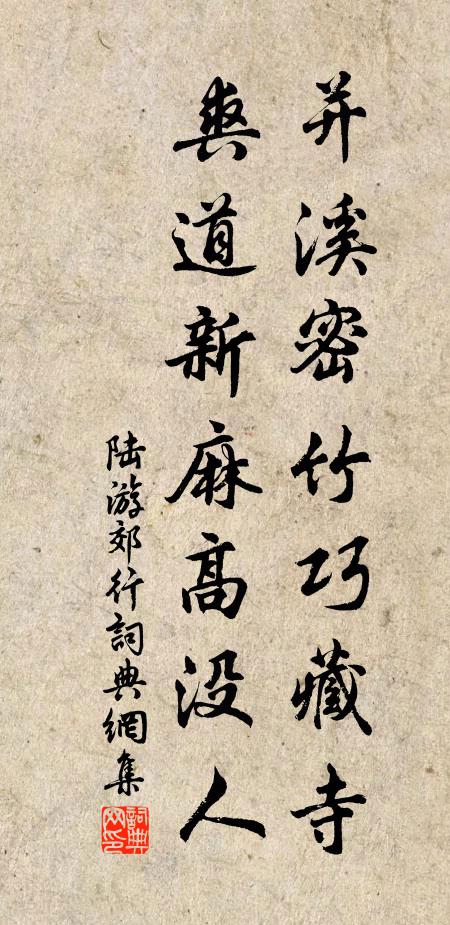 并溪密竹巧藏寺
夾道新麻高没人
陆游郊行詞典網集
詞典网印